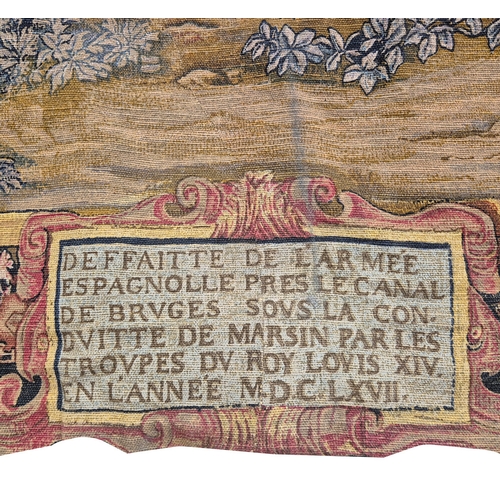 DEFFAITTE DE L'ARMEE
ESPAGNOLLE PRES LE CANAL
DE BRVGES SOVS LA CON-
DVITTE DE MARSIN PAR LES
TROVPES DV ROY LOVIS XIV.
EN L'ANNÉE M.D.C.LXVII.